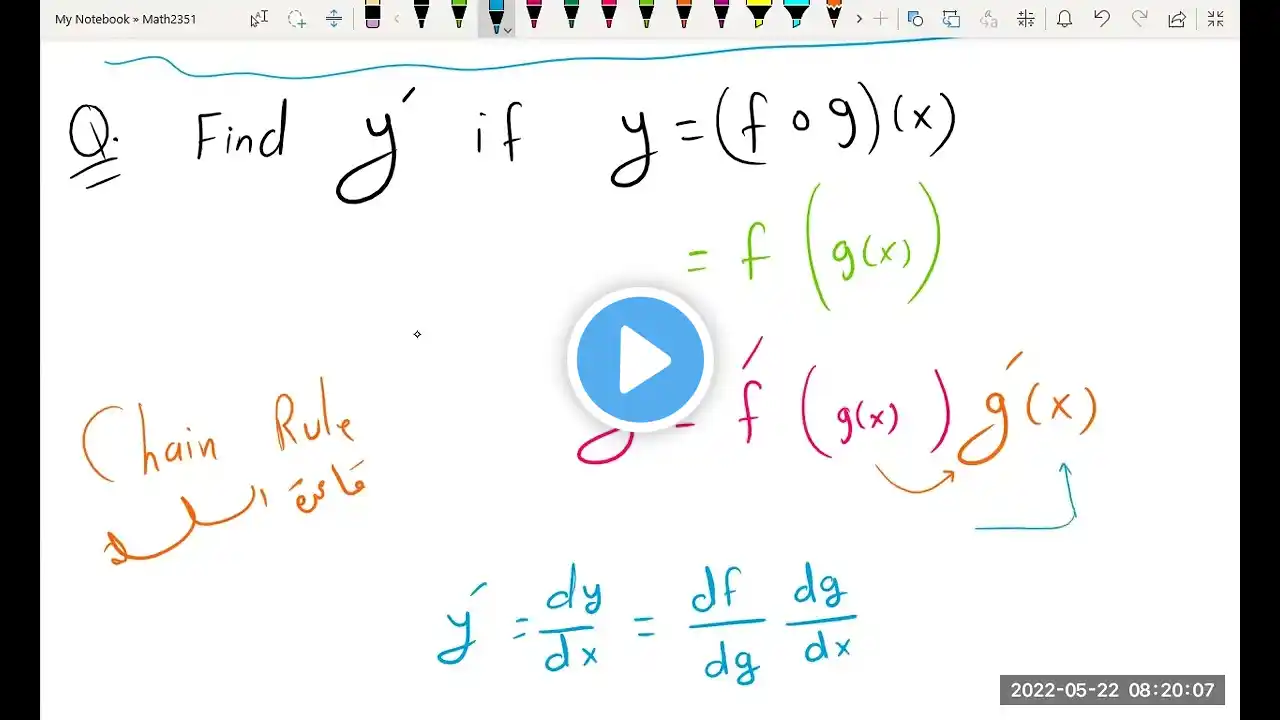 My Notebook » Math2351
Q. Find y′ if y = (f ∘ g)(x)
= f (g(x))
= f′ (g(x)) g′(x)
Chain Rule
قاعدة السلسلة
y′ = dy/dx = df/dg dg/dx
2022-05-22 08:20:07